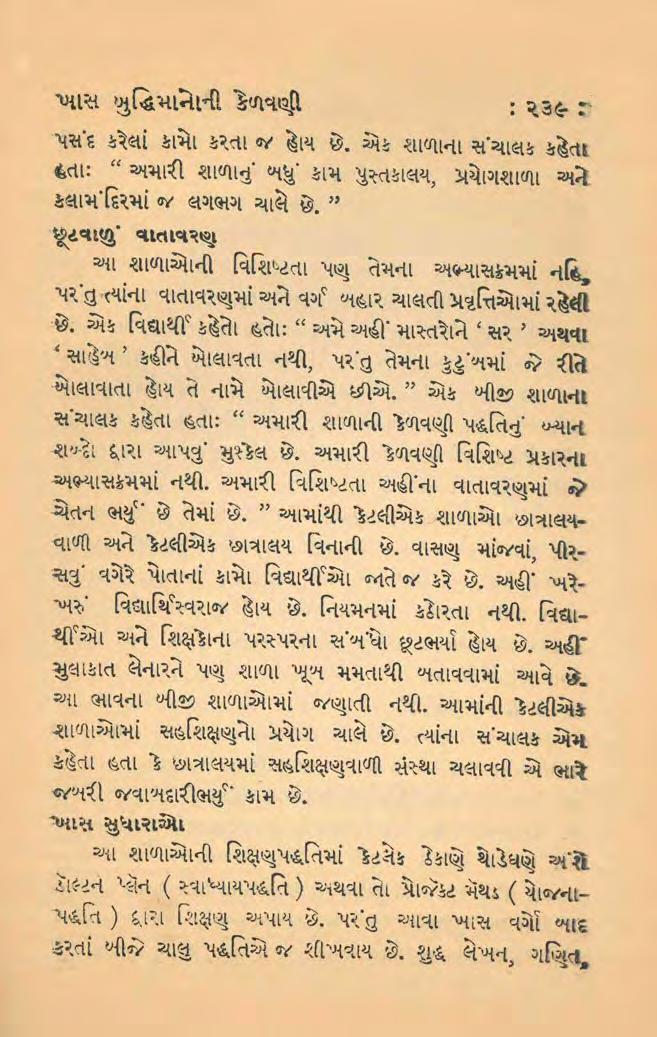 ખાસ બુદ્ધિમાનોની કેળવણી : ૨૩૯ :
પસંદ કરેલાં કામો કરતા જ હોય છે. એક શાળાના સંચાલક કહેતા
હતાઃ “ અમારી શાળાનું બધું કામ પુસ્તકાલય, પ્રયોગશાળા અને
કલામંદિરમાં જ લગભગ ચાલે છે. ”
છૂટવાળું વાતાવરણ
આ શાળાઓની વિશિષ્ટતા પણ તેમના અભ્યાસક્રમમાં નહિ,
પરંતુ ત્યાંના વાતાવરણમાં અને વર્ગ બહાર ચાલતી પ્રવૃત્તિઓમાં રહેલી
છે. એક વિદ્યાર્થી કહેતો હતોઃ “ અમે અહીં માસ્તરોને ‘ સર ’ અથવા
‘ સાહેબ ’ કહીને બોલાવતા નથી, પરંતુ તેમના કુટુંબમાં જે રીતે
બોલાવાતા હોય તે નામે બોલાવીએ છીએ. ” એક બીજી શાળાના
સંચાલક કહેતા હતાઃ “ અમારી શાળાની કેળવણી પદ્ધતિનું બ્યાન
શબ્દો દ્વારા આપવું મુશ્કેલ છે. અમારી કેળવણી વિશિષ્ટ પ્રકારના
અભ્યાસક્રમમાં નથી. અમારી વિશિષ્ટતા અહીંના વાતાવરણમાં જે
ચેતન ભર્યું છે તેમાં છે. ” આમાંથી કેટલીએક શાળાઓ છાત્રાલય-
વાળી અને કેટલીએક છાત્રાલય વિનાની છે. વાસણ માંજવાં, પીર-
સવું વગેરે પોતાનાં કામો વિદ્યાર્થીઓ જાતે જ કરે છે. અહીં ખરે-
ખરું વિદ્યાર્થિસ્વરાજ હોય છે. નિયમનમાં કઠોરતા નથી. વિદ્યા-
ર્થીઓ અને શિક્ષકોના પરસ્પરના સંબંધો છૂટભર્યા હોય છે. અહીં
મુલાકાત લેનારને પણ શાળા ખૂબ મમતાથી બતાવવામાં આવે છે.
આ ભાવના બીજી શાળાઓમાં જણાતી નથી. આમાંની કેટલીએક
શાળાઓમાં સહશિક્ષણનો પ્રયોગ ચાલે છે. ત્યાંના સંચાલક એમ
કહેતા હતા કે છાત્રાલયમાં સહશિક્ષણવાળી સંસ્થા ચલાવવી એ ભારે
જબરી જવાબદારીભર્યું કામ છે.
ખાસ સુધારાઓ
આ શાળાઓની શિક્ષણપદ્ધતિમાં કેટલેક ઠેકાણે થોડેઘણે અંશે
ડૉલ્ટન પ્લૅન ( સ્વાધ્યાયપદ્ધતિ ) અથવા તો પ્રોજૅક્ટ મૅથડ ( યોજના-
પદ્ધતિ ) દ્વારા શિક્ષણ અપાય છે. પરંતુ આવા ખાસ વર્ગો બાદ
કરતાં બીજે ચાલુ પદ્ધતિએ જ શીખવાય છે. શુદ્ધ લેખન, ગણિત,